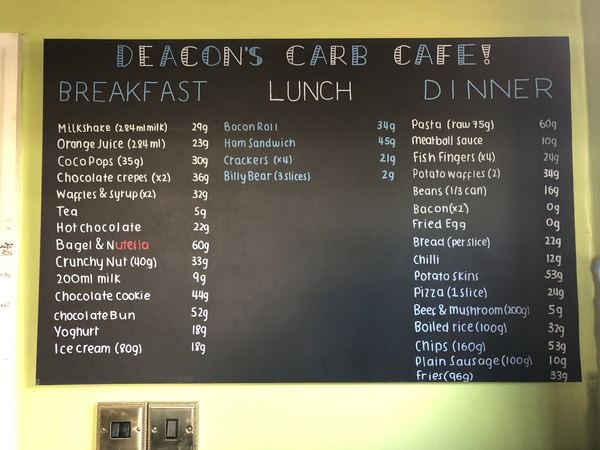 DEACON'S CARB CAFE!
BREAKFAST
Milkshake (284ml milk) 29g
Orange Juice (284ml) 23g
Coco Pops (35g) 30g
Chocolate crepes (x2) 36g
Waffles & syrup (x2) 32g
Tea 5g
Hot chocolate 22g
Bagel & Nutella 60g
Crunchy Nut (40g) 33g
200ml milk 9g
Chocolate cookie 44g
chocolate Bun 52g
Yoghurt 18g
Ice cream (80g) 18g
LUNCH
Bacon Roll 34g
Ham Sandwich 45g
Crackers (x4) 21g
Billy Bear (3 slices) 2g
DINNER
Pasta (raw 75g) 60g
Meatball sauce 10g
Fish Fingers (x4) 24g
Potato waffles (2) 34g
Beans (1/3 can) 16g
Bacon (x2) 0g
Fried Egg 0g
Bread (per slice) 22g
Chilli 12g
Potato skins 53g
Pizza (1 slice) 24g
Beef & mushroom (200g) 5g
Boiled rice (100g) 32g
Chips (160g) 53g
Plain Sausage (100g) 10g
Fries (96g) 33g